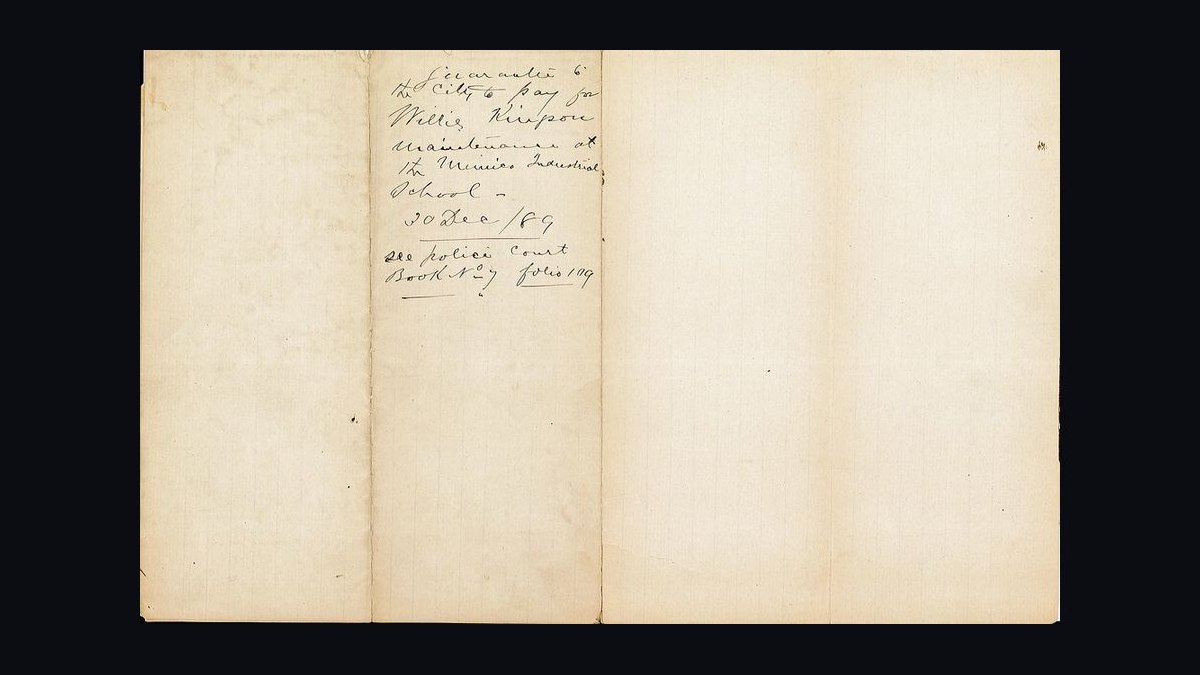 Guarantee to
the City to pay for
Willie Kingson
maintenance at
the Mimico Industrial
School -
30 Dec /89
see police Court
Book No 7 folio 179